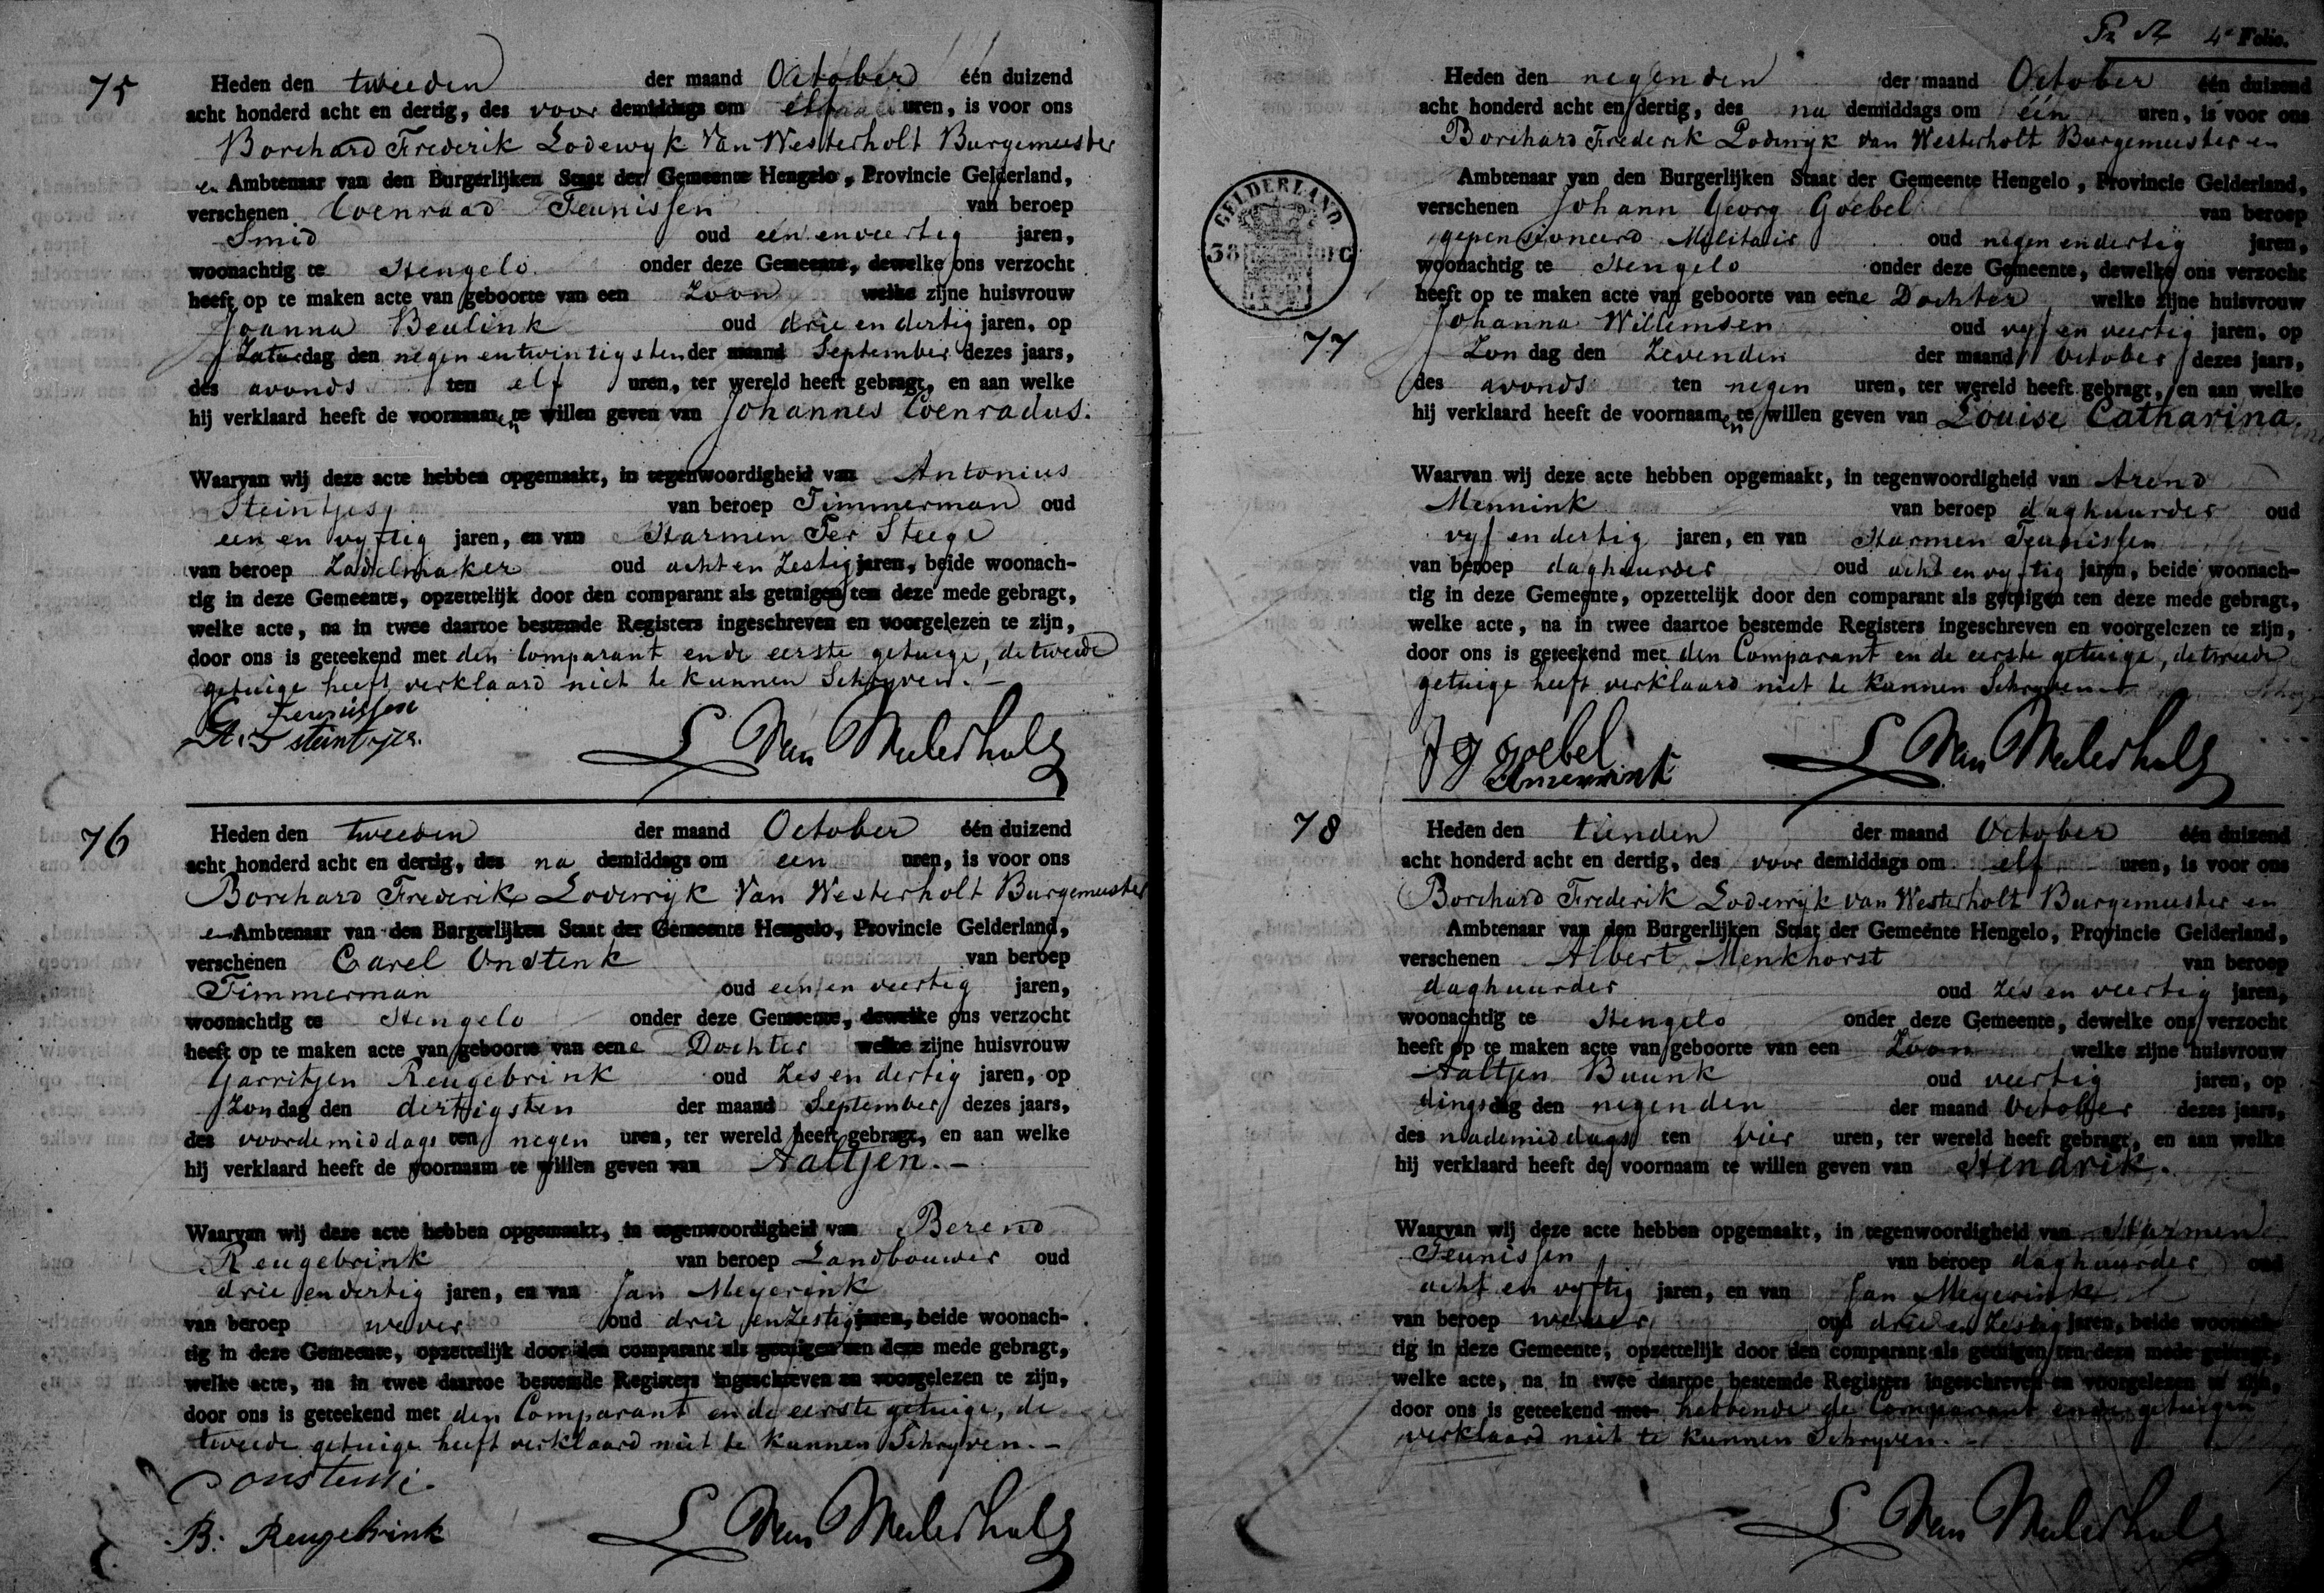 75
Heden den tweeden der maand October één duizend
acht honderd acht en dertig, des voor demiddags om elf uren, is voor ons
Borchard Frederik Lodewyk Van Westerholt Burgemeester
en Ambtenaar van den Burgerlijken Staat der Gemeente Hengelo, Provincie Gelderland,
verschenen Coenraad Teunissen van beroep
Smid oud een en veertig jaren,
woonachtig te Hengelo onder deze Gemeente, dewelke ons verzocht
heeft op te maken acte van geboorte van een Zoon welke zijne huisvrouw
Joanna Beulink oud drie en dertig jaren, op
Zaturdag den negen en twintigsten der maand September dezes jaars,
des avonds ten elf uren, ter wereld heeft gebragt, en aan welke
hij verklaard heeft de voornaamen te willen geven van Johannes Coenradus.
Waarvan wij deze acte hebben opgemaakt, in tegenwoordigheid van Antonius
Steintjes van beroep Timmerman oud
een en vyftig jaren, en van Harmen Ter Steege
van beroep Zadelmaker oud acht en Zestig jaren, beide woonach-
tig in deze Gemeente, opzettelijk door den comparant als getuigen ten deze mede gebragt,
welke acte, na in twee daartoe bestemde Registers ingeschreven en voorgelezen te zijn,
door ons is geteekend met den Comparant en de eerste getuige, de tweede
getuige heeft verklaard niet te kunnen Schryven. -
C Teunissen
A. Steintjes.
L Van Westerholt
76
Heden den tweeden der maand October één duizend
acht honderd acht en dertig, des na demiddags om een uren, is voor ons
Borchard Frederik Lodewyk Van Westerholt Burgemeester
en Ambtenaar van den Burgerlijken Staat der Gemeente Hengelo, Provincie Gelderland,
verschenen Carel Onstenk van beroep
Timmerman oud een en veertig jaren,
woonachtig te Hengelo onder deze Gemeente, dewelke ons verzocht
heeft op te maken acte van geboorte van eene Dochter welke zijne huisvrouw
Garritjen Reugebrink oud Zes en dertig jaren, op
Zondag den dertigsten der maand September dezes jaars,
des voordemiddags ten negen uren, ter wereld heeft gebragt, en aan welke
hij verklaard heeft de voornaam te willen geven van Aaltjen. -
Waarvan wij deze acte hebben opgemaakt, in tegenwoordigheid van Berend
Reugebrink van beroep Landbouwer oud
drie en dertig jaren, en van Jan Meyerink
van beroep wever oud drie en Zestig jaren, beide woonach-
tig in deze Gemeente, opzettelijk door den comparant als getuigen ten deze mede gebragt,
welke acte, na in twee daartoe bestemde Registers ingeschreven en voorgelezen te zijn,
door ons is geteekend met den Comparant en de eerste getuige, de
tweede getuige heeft verklaard niet te kunnen Schryven. -
B: Reugebrink
L Van Westerholt
4e Folio.
Heden den negenden der maand October één duizend
acht honderd acht en dertig, des na demiddags om één uren, is voor ons
Borchard Frederik Lodewyk van Westerholt Burgemeester en
Ambtenaar van den Burgerlijken Staat der Gemeente Hengelo, Provincie Gelderland,
verschenen Johann Georg Goebel van beroep
gepensioneerd Militair oud negen en dertig jaren,
woonachtig te Hengelo onder deze Gemeente, dewelke ons verzocht
heeft op te maken acte van geboorte van eene Dochter welke zijne huisvrouw
GELDERLAND.
38
77
Johanna Willemsen oud vyf en veertig jaren, op
Zondag den Zevenden der maand October dezes jaars,
des avonds ten negen uren, ter wereld heeft gebragt, en aan welke
hij verklaard heeft de voornaamen te willen geven van Louise Catharina.
Waarvan wij deze acte hebben opgemaakt, in tegenwoordigheid van Arend
Mennink van beroep daghuurder oud
vyf en dertig jaren, en van Harmen Teunissen
van beroep daghuurder oud acht en vyftig jaren, beide woonach-
tig in deze Gemeente, opzettelijk door den comparant als getuigen ten deze mede gebragt,
welke acte, na in twee daartoe bestemde Registers ingeschreven en voorgelezen te zijn,
door ons is geteekend met den Comparant en de eerste getuige, de tweede
getuige heeft verklaard niet te kunnen Schryven -
J G Goebel
L Van Westerholt
78
Heden den tienden der maand October één duizend
acht honderd acht en dertig, des voor demiddags om elf uren, is voor ons
Borchard Frederik Lodewyk van Westerholt Burgemeester en
Ambtenaar van den Burgerlijken Staat der Gemeente Hengelo, Provincie Gelderland,
verschenen Albert Menkhorst van beroep
daghuurder oud Zes en veertig jaren,
woonachtig te Hengelo onder deze Gemeente, dewelke ons verzocht
heeft op te maken acte van geboorte van een Zoon welke zijne huisvrouw
Aaltjen Buunk oud veertig jaren, op
dingsdag den negenden der maand October dezes jaars,
des nademiddags ten vier uren, ter wereld heeft gebragt, en aan welke
hij verklaard heeft de voornaam te willen geven van Hendrik.
Waarvan wij deze acte hebben opgemaakt, in tegenwoordigheid van Harmen
Teunissen van beroep daghuurder oud
acht en vyftig jaren, en van Jan Meyerink
van beroep wever oud drie en Zestig jaren, beide woonach-
tig in deze Gemeente, opzettelijk door den comparant als getuigen ten deze mede gebragt,
welke acte, na in twee daartoe bestemde Registers ingeschreven en voorgelezen te zijn,
door ons is geteekend met hebbende de Comparant en de getuigen
verklaard niet te kunnen Schryven. -
L Van Westerholt